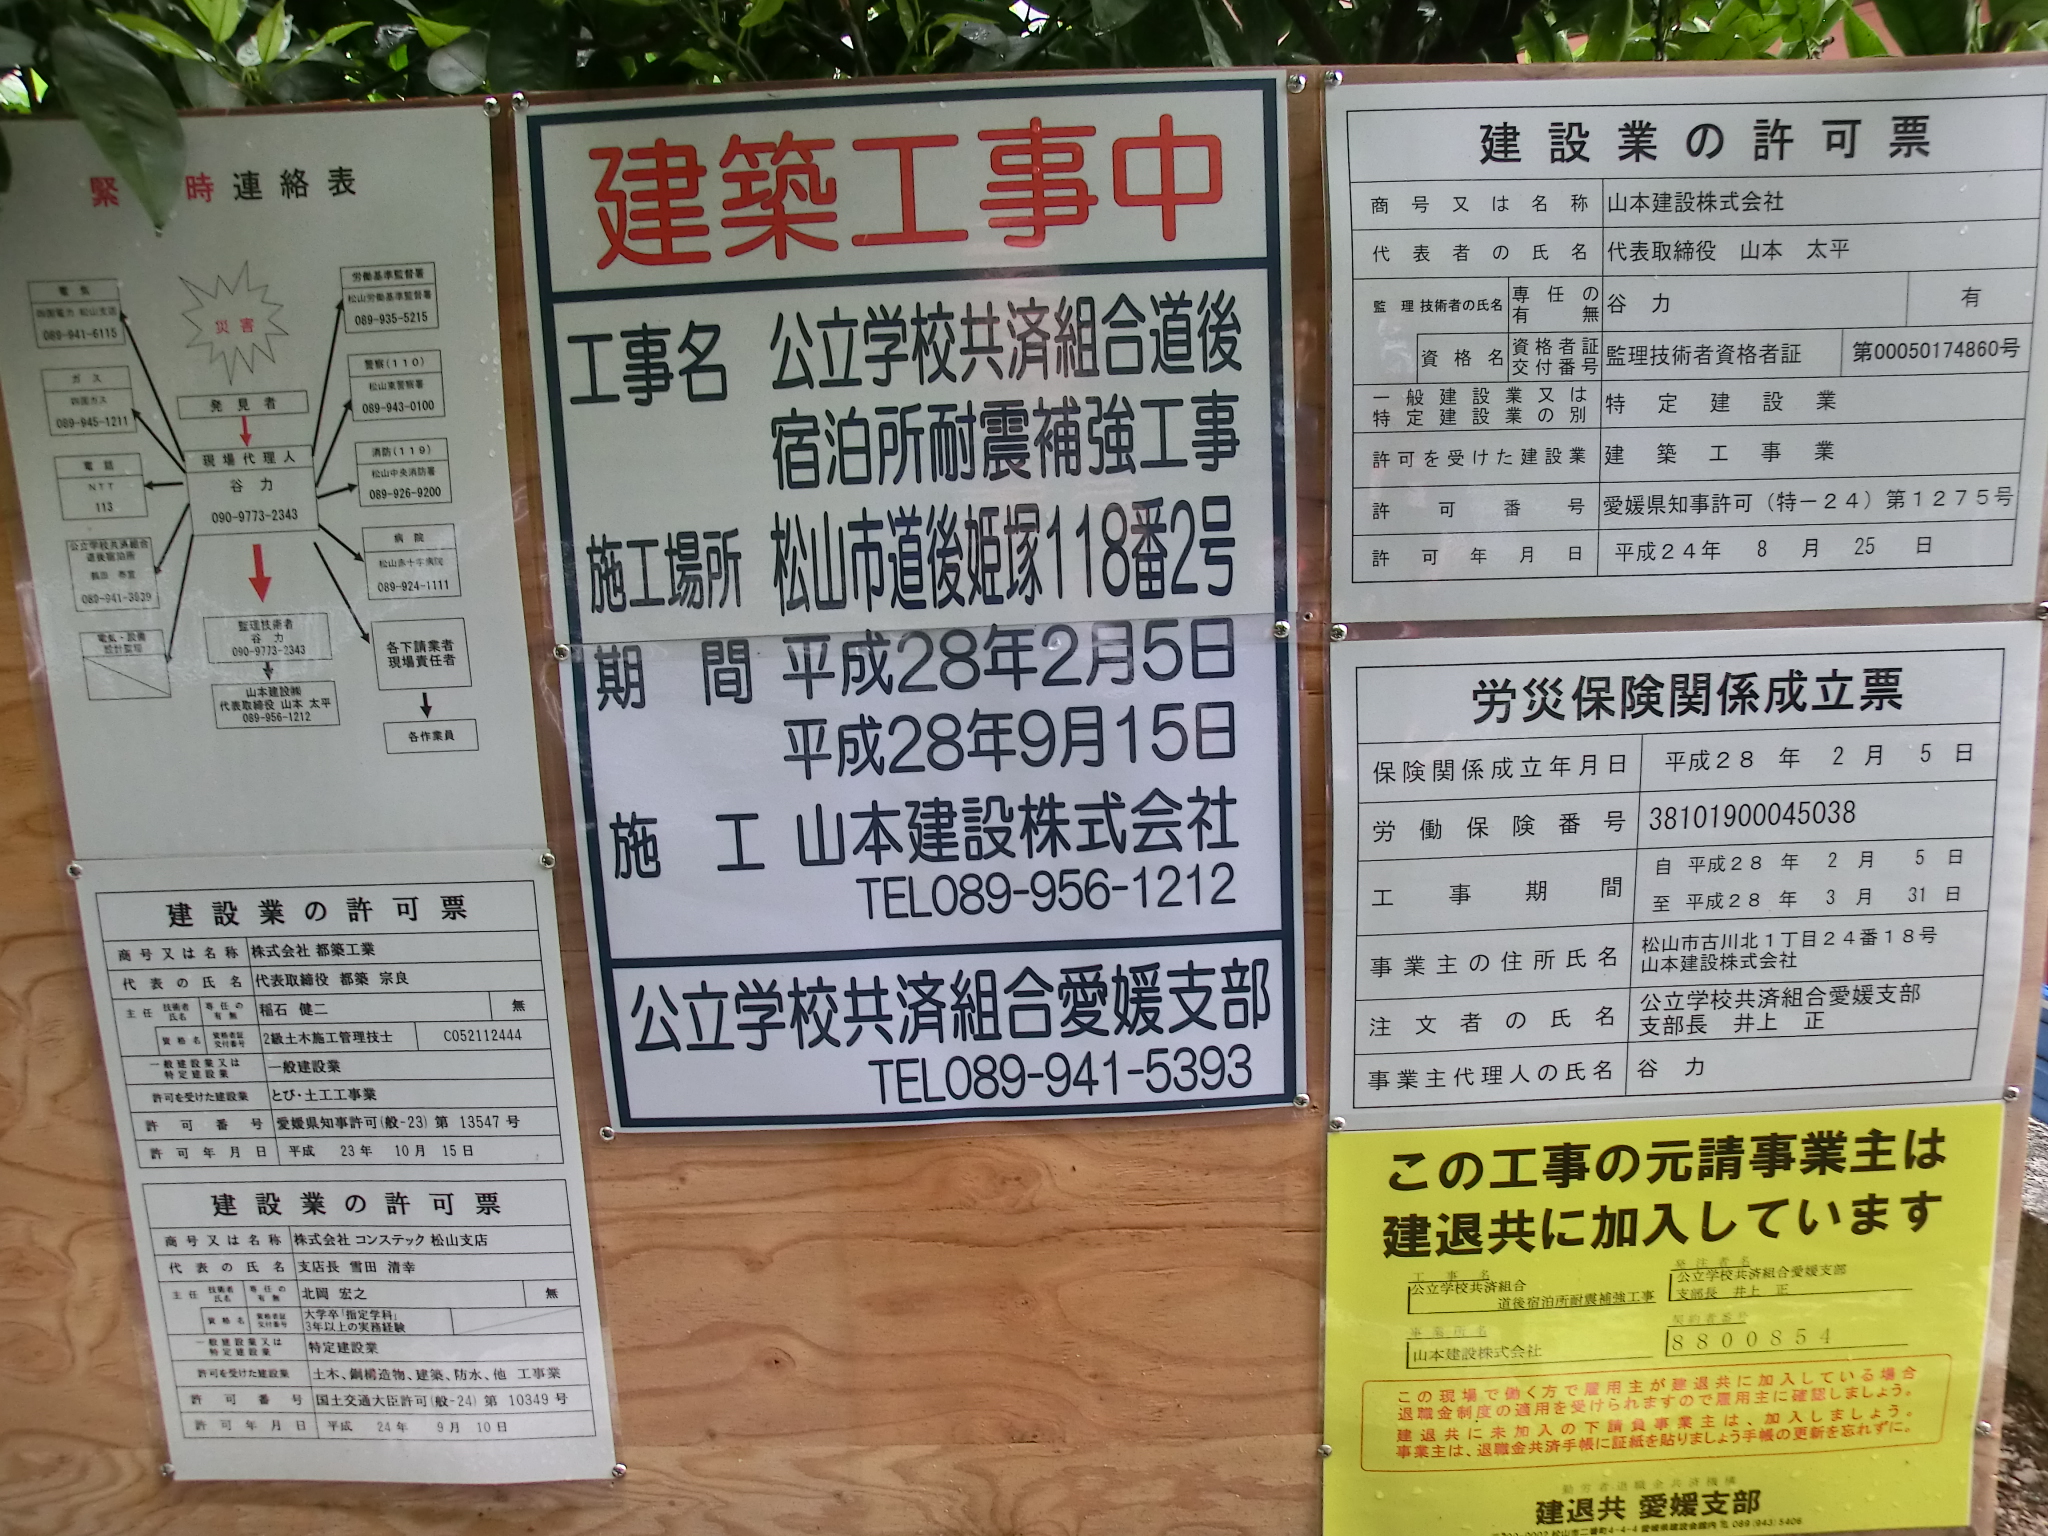 緊 時連絡表
災害
発見者
現場代理人
谷 力
090-9773-2343
電気
四国電力 松山支店
089-941-6115
ガス
四国ガス
089-945-1211
電話
NTT
113
公立学校共済組合
道後宿泊所
電気・設備
設計監理
労働基準監督署
松山労働基準監督署
089-935-5215
警察(110)
松山東警察署
089-943-0100
消防(119)
松山中央消防署
089-926-9200
病院
松山赤十字病院
089-924-1111
監理技術者
谷 力
090-9773-2343
山本建設㈱
代表取締役 山本 太平
089-956-1212
各下請業者
現場責任者
各作業員
建設業の許可票
商号又は名称 株式会社 都築工業
代表の氏名 代表取締役 都築 宗良
主任 技術者氏名 専任の有無 稲石 健二 無
資格名 資格者証交付番号 2級土木施工管理技士 C052112444
一般建設業又は特定建設業 一般建設業
許可を受けた建設業 とび・土工工事業
許可番号 愛媛県知事許可(般-23) 第 13547 号
許可年月日 平成 23年 10月 15日
建設業の許可票
商号又は名称 株式会社 コンステック 松山支店
代表の氏名 支店長 雪田 清幸
主任 技術者氏名 専任の有無 北岡 宏之 無
資格名 資格者証交付番号 大学卒「指定学科」
3年以上の実務経験
一般建設業又は特定建設業 特定建設業
許可を受けた建設業 土木、鋼構造物、建築、防水、他 工事業
許可番号 国土交通大臣許可(般-24) 第 10349 号
許可年月日 平成 24年 9月 10日
建築工事中
工事名 公立学校共済組合道後
宿泊所耐震補強工事
施工場所 松山市道後姫塚118番2号
期間 平成28年2月5日
平成28年9月15日
施工 山本建設株式会社
TEL089-956-1212
公立学校共済組合愛媛支部
TEL089-941-5393
建設業の許可票
商号又は名称 山本建設株式会社
代表者の氏名 代表取締役 山本 太平
監理技術者の氏名 専任の有無 谷 力 有
資格名 資格者証交付番号 監理技術者資格者証 第00050174860号
一般建設業又は特定建設業の別 特定建設業
許可を受けた建設業 建築工事業
許可番号 愛媛県知事許可(特-24)第1275号
許可年月日 平成24年 8月 25日
労災保険関係成立票
保険関係成立年月日 平成28年 2月 5日
労働保険番号 38101900045038
工事期間 自 平成28年 2月 5日
至 平成28年 3月 31日
事業主の住所氏名 松山市古川北1丁目24番18号
山本建設株式会社
注文者の氏名 公立学校共済組合愛媛支部
支部長 井上 正
事業主代理人の氏名 谷 力
この工事の元請事業主は
建退共に加入しています
工事名
公立学校共済組合
道後宿泊所耐震補強工事
発注者名
公立学校共済組合愛媛支部
支部長 井上 正
事業所名
山本建設株式会社
契約者番号
8800854
この現場で働く方で雇用主が建退共に加入している場合
退職金制度の適用を受けられますので雇用主に確認しましょう。
建退共に未加入の下請負事業主は、加入しましょう。
事業主は、退職金共済手帳に証紙を貼りましょう手帳の更新を忘れずに。
勤労者退職金共済機構
建退共 愛媛支部
松山市二番町4-4-4 愛媛県建設会館内 ℡ 089(943)5406